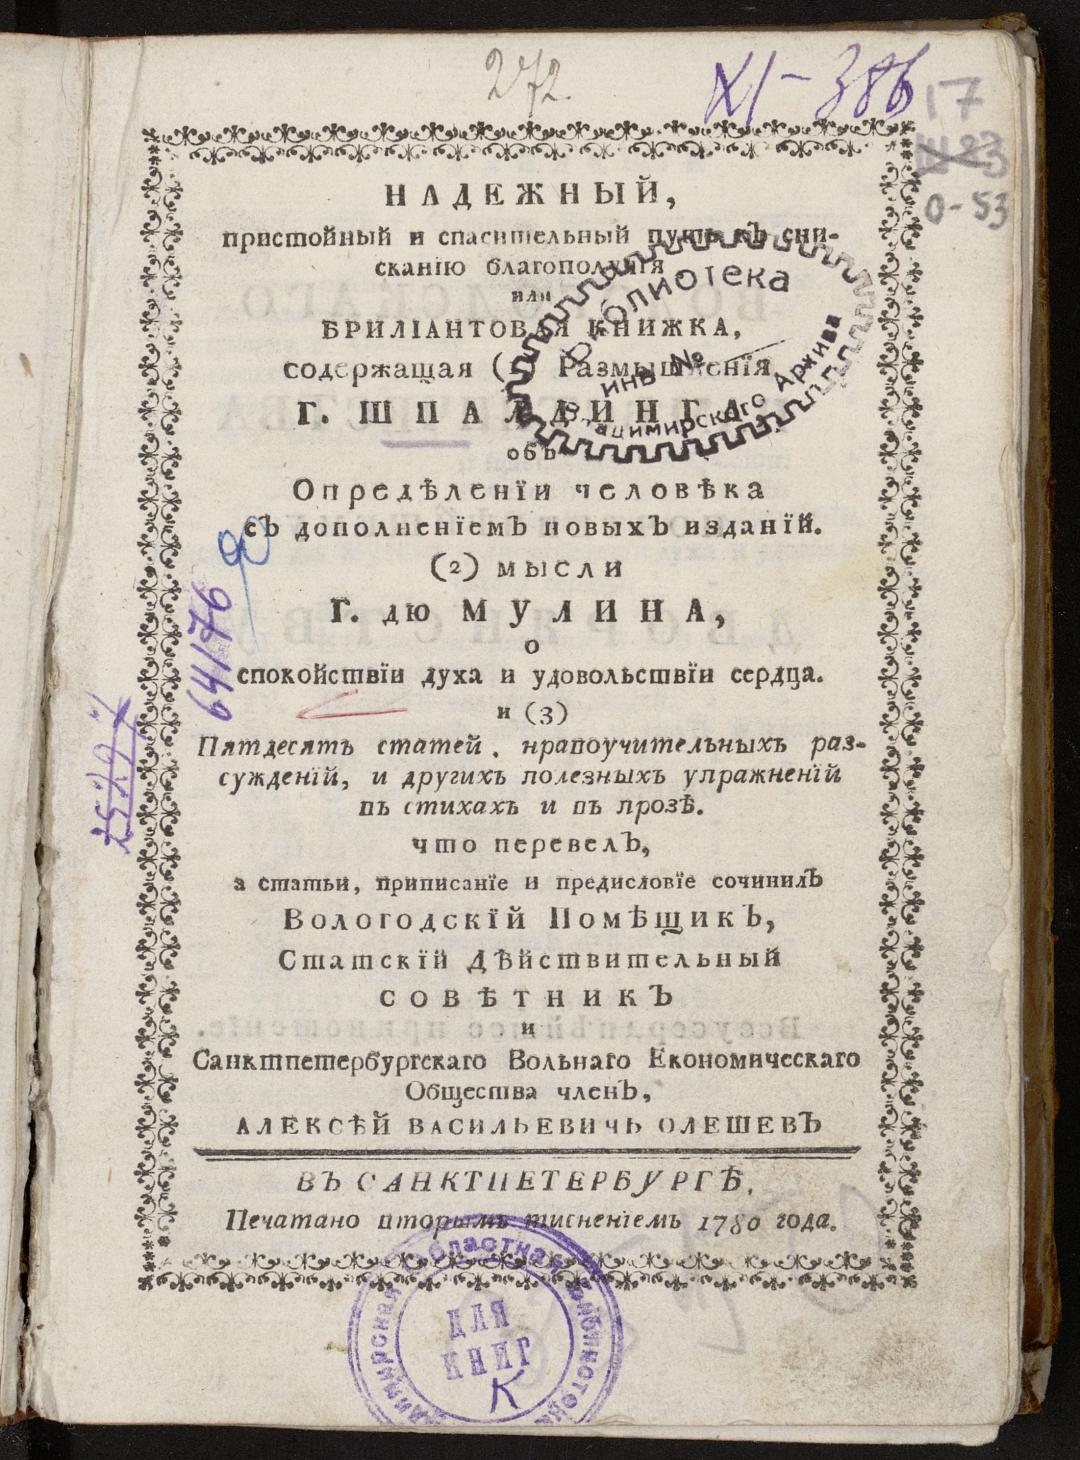 272.
XI-386
17
0-53
НАДЕЖНЫЙ,
пристойный и спасительный путь къ сни-
сканію благополучія
или
БРИЛІАНТОВАЯ КНИЖКА,
содержащая ( ) Размышленія
Г. ШПАЛДИНГА
объ
Опредѣленїи человѣка
съ дополненїемъ новыхъ изданїй.
(2) мысли
Г. дю МУЛИНА,
о
спокойствїи духа и удовольствїи сердца.
и (3)
Пятдесять статей, нравоучительныхъ раз-
сужденїй, и другихъ полезныхъ упражненїй
въ стихахъ и въ прозѣ.
что перевелъ,
а статьи, приписанїе и предисловїе сочинилъ
Вологодскїй Помѣщикъ,
Статскїй Дѣйствительный
СОВѢТНИКЪ
и
Санктпетербургскаго Вольнаго Економическаго
Общества членъ,
АЛЕКСѢЙ ВАСИЛЬЕВИЧЬ ОЛЕШЕВЪ
ВЪ САНКТПЕТЕРБУРГѢ,
Печатано вторымъ тисненїемъ 1780 года.
Библиотека
инв №
Владимирского Архива
64/76
Владимирская областная библиотека
ДЛЯ
КНИГ
К